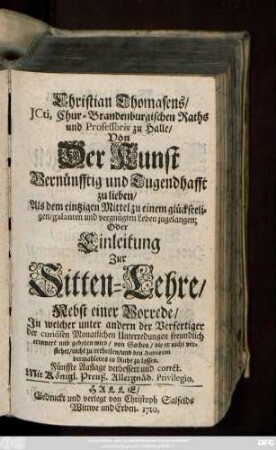 Christian Thomasens/
JCti, Chur-Brandenburgischen Raths
und Professoris zu Halle/
Von
Der Kunst
Vernünfftig und Tugendhafft
zu lieben/
Als dem eintzigen Mittel zu einem glückseeli-
gen/galanten und vergnügten Leben zugelangen;
Oder
Einleitung
Zur
Sitten-Lehre/
Nebst einer Vorrede/
In welcher unter andern der Verfertiger
der curiösen Monatlichen Unterredungen freundlich
erinnert und gebeten wird/ von Sachen/ die er nicht ver-
stehet/nicht zu urtheilen/und den Autorem
dermahleins in Ruhe zu lassen.
Fünffte Auflage verbessert und correct.
Mit Königl. Preuß. Allergnäd. Privilegio.
HALLE/
Gedruckt und verlegt von Christoph Salfelds
Wittwe und Erben. 1710.